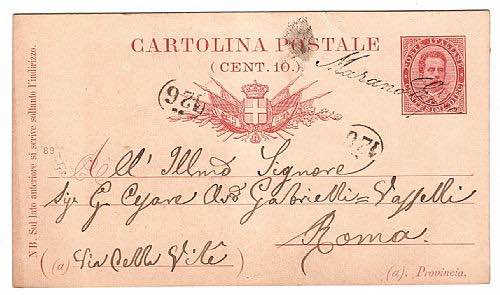 CARTOLINA POSTALE
(CENT. 10.)
POSTE ITALIANE
Marano
126
126
All' Illmo Signore
Sigr G. Cesare Avo Gabrielli = Vasselli
Roma.
(a) Via della Vite
(a). Provincia.
NB. Sul lato anteriore si scrive soltanto l'indirizzo.